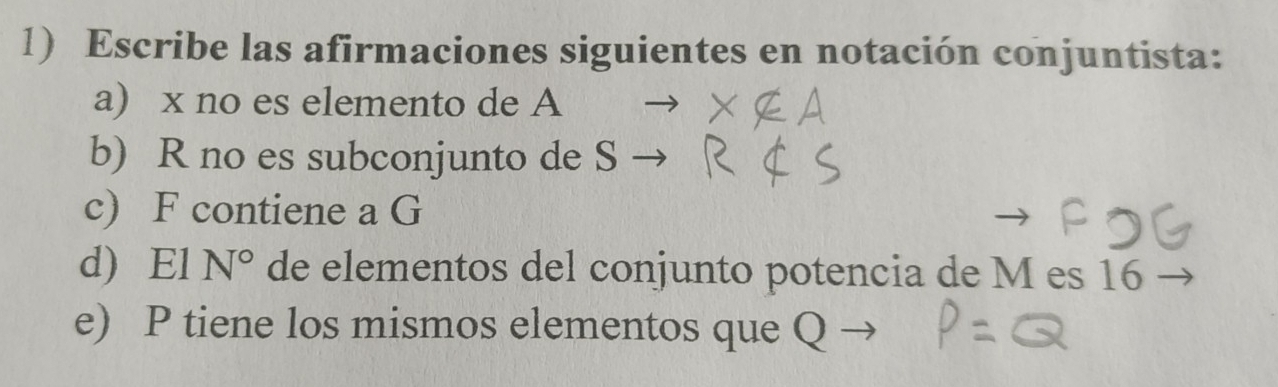 1) Escribe las afirmaciones siguientes en notación conjuntista:
a) x no es elemento de A → X ∉ A
b) R no es subconjunto de S → R ⊄ S
c) F contiene a G → F ⊃ G
d) El N° de elementos del conjunto potencia de M es 16 →
e) P tiene los mismos elementos que Q → P = Q